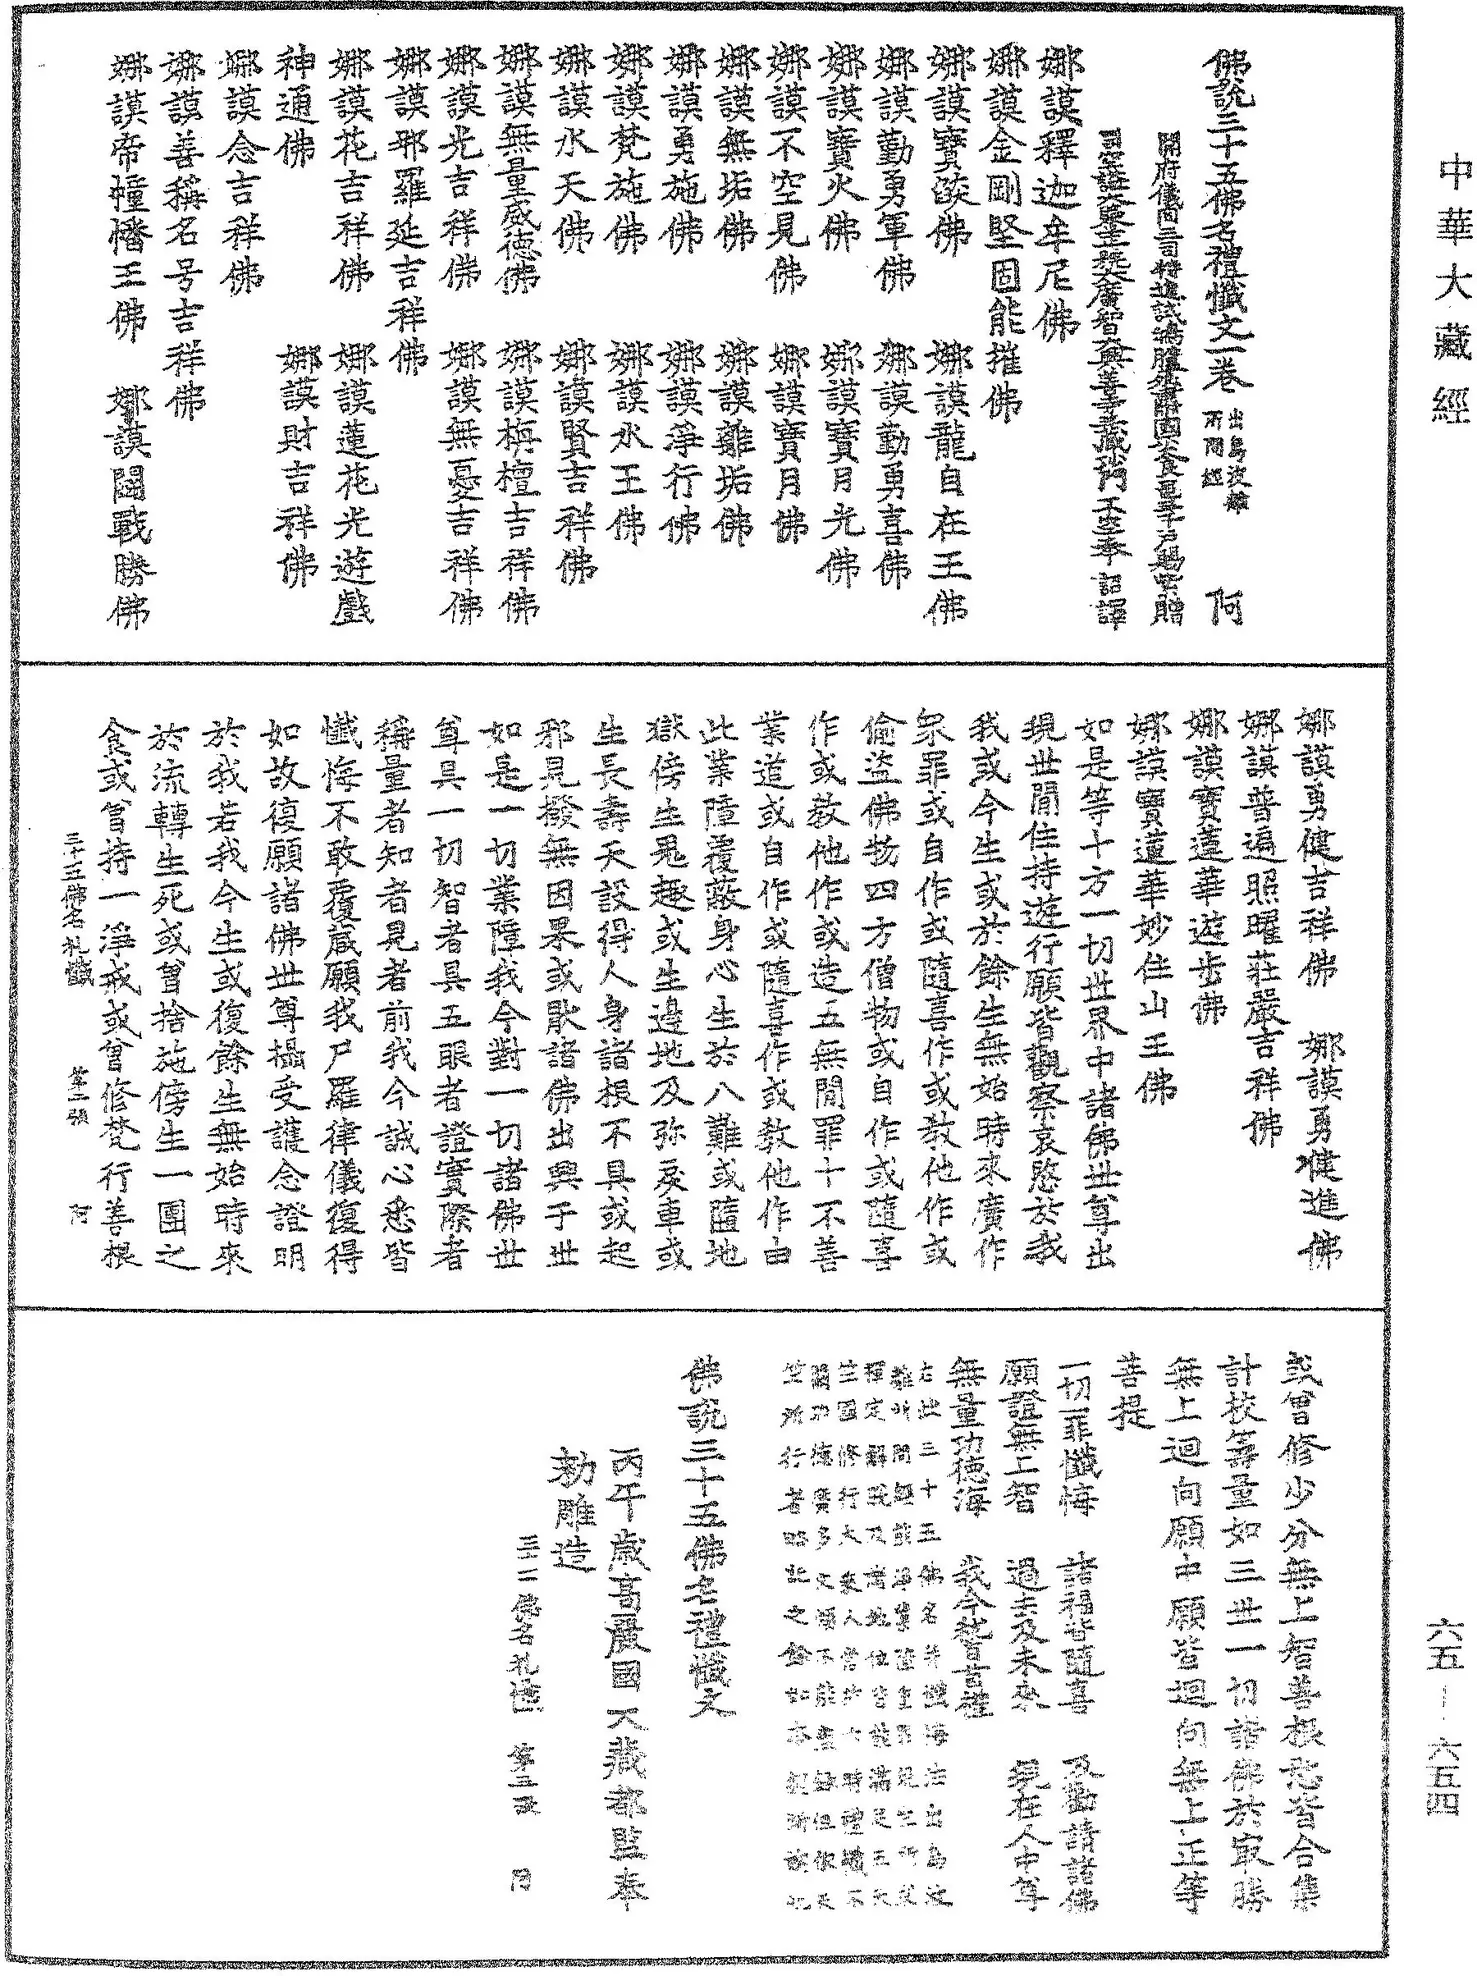 中華大藏經
佛說三十五佛名禮懺文一卷 出烏波離所問經 阿
開府儀同三司特進試鴻臚卿肅國公食邑三千戶賜紫贈
司空謚大鑒正號大廣智大興善寺三藏沙門不空奉 詔譯
娜謨釋迦牟尼佛
娜謨金剛堅固能摧佛
娜謨寶焰佛 娜謨龍自在王佛
娜謨勤勇軍佛 娜謨勤勇喜佛
娜謨寶火佛 娜謨寶月光佛
娜謨不空見佛 娜謨寶月佛
娜謨無垢佛 娜謨離垢佛
娜謨勇施佛 娜謨淨行佛
娜謨梵施佛 娜謨水王佛
娜謨水天佛 娜謨賢吉祥佛
娜謨無量威德佛 娜謨栴檀吉祥佛
娜謨光吉祥佛 娜謨無憂吉祥佛
娜謨那羅延吉祥佛
娜謨花吉祥佛 娜謨蓮花光遊戲
神通佛 娜謨財吉祥佛
娜謨念吉祥佛
娜謨善稱名号吉祥佛
娜謨帝幢幡王佛 娜謨鬪戰勝佛
娜謨勇健吉祥佛 娜謨勇健進佛
娜謨普遍照曜莊嚴吉祥佛
娜謨寶蓮華遊步佛
娜謨寶蓮華妙住山王佛
如是等十方一切世界中諸佛世尊出
現世間住持遊行願皆觀察哀愍於我
我或今生或於餘生無始時來廣作
眾罪或自作或隨喜作或教他作或
偷盜佛物四方僧物或自作或隨喜
作或教他作或造五無間罪十不善
業道或自作或隨喜作或教他作由
此業障覆蔽身心生於八難或墮地
獄傍生鬼趣或生邊地及弥戾車或
生長壽天設得人身諸根不具或起
邪見撥無因果或猒諸佛出興于世
如是一切業障我今對一切諸佛世
尊具一切智者具五眼者證實際者
稱量者知者見者前我今誠心悉皆
懺悔不敢覆藏願我尸羅律儀復得
如故復願諸佛世尊攝受護念證明
於我若我今生或復餘生無始時來
於流轉生死或曾捨施傍生一團之
食或曾持一淨戒或曾修梵行善根
三十五佛名礼懺 第二張 阿
或曾修少分無上智善根悉皆合集
計挍籌量如三世一切諸佛於最勝
無上迴向願中願皆迴向無上正等
菩提
一切罪懺悔 諸福皆隨喜 及勸請諸佛
願證無上智 過去及未來 現在人中尊
無量功德海 我今稽首禮
右此三十五佛名并懺悔法出烏波
離所問經能淨業障重罪現生所求
禪定解脫及諸地位皆能滿足五天
竺國修行大乘人常於六時禮懺不
闕功德廣多文煩不能盡錄但依天
竺所行者略記之餘如本經所說也
佛說三十五佛名禮懺文
丙午歲高麗國大藏都監奉
勑雕造
佛名礼懺 第三張 阿
六五—六五四